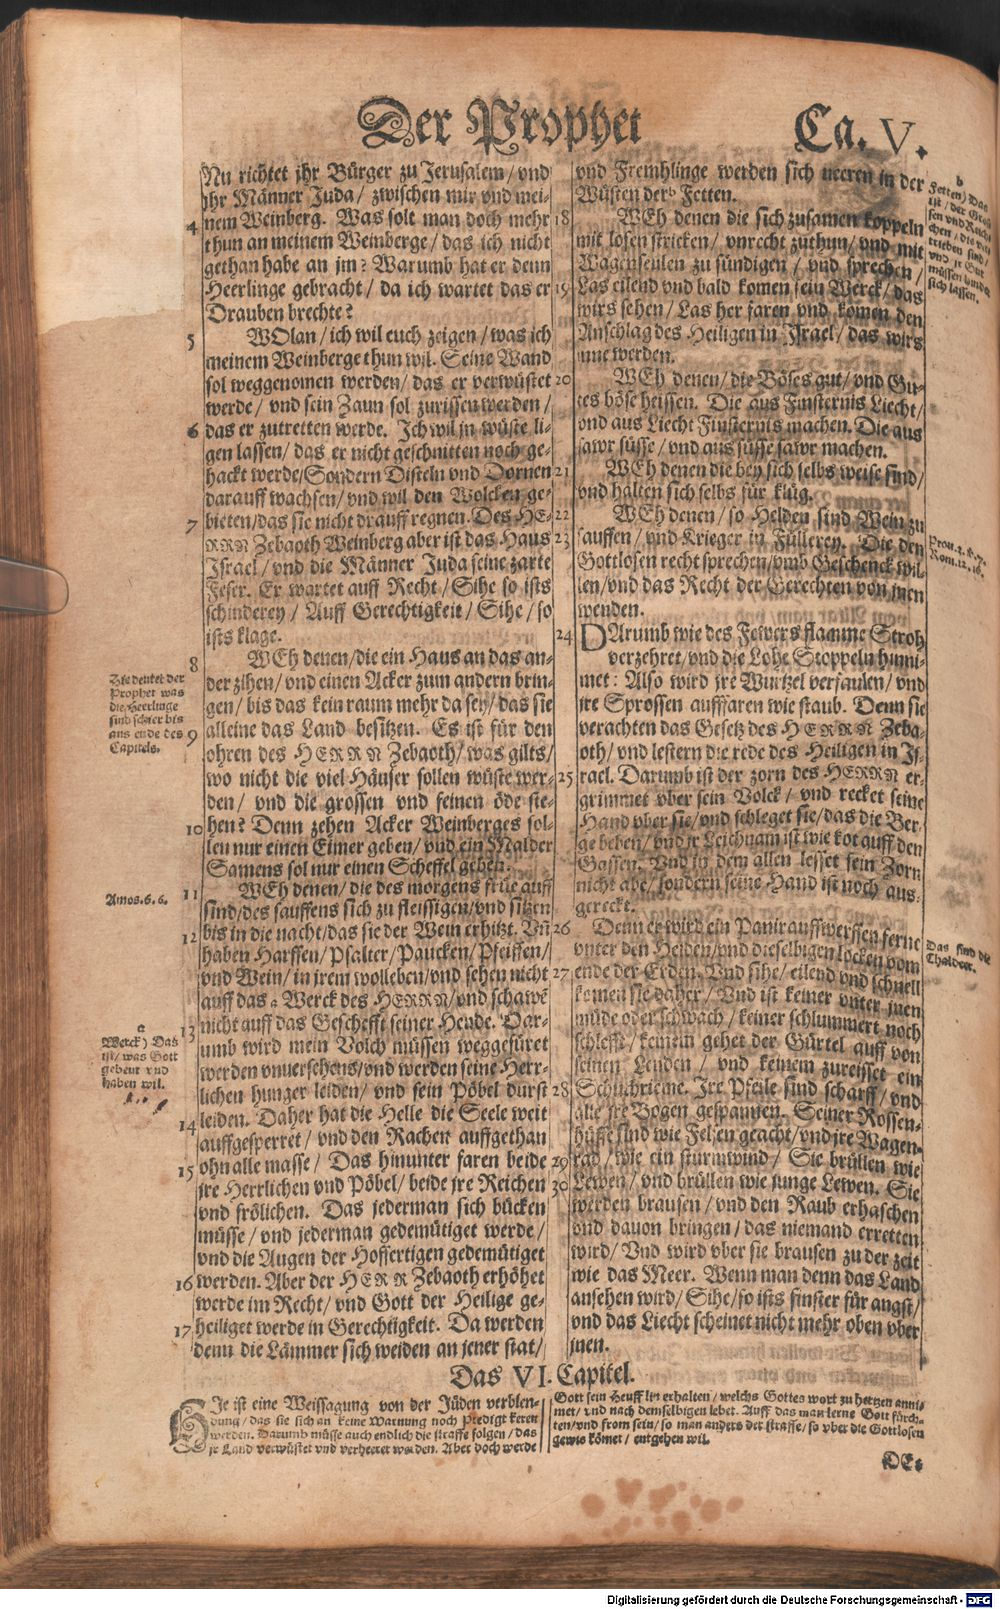 Der Prophet
Ca. V.
Nu richtet jhr Bürger zu Jerusalem / vnd
jhr Männer Juda / zwischen mir vnd mei-
4 nem Weinberg. Was solt man doch mehr
thun an meinem Weinberge / das ich nicht
gethan habe an jm? Warumb hat er denn
Heerlinge gebracht / da ich wartet das er
Drauben brechte?
5 WOlan / ich wil euch zeigen / was ich
meinem Weinberge thun wil. Seine Wand
sol weggenomen werden / das er verwüstet
werde / vnd sein Zaun sol zurissen werden /
6 das er zutretten werde. Ich wil jn wüste li-
gen lassen / das er nicht geschnitten noch ge-
hackt werde / Sondern Disteln vnd Dornen
darauff wachsen / vnd wil den Wolcken ge-
7 bieten / das sie nicht drauff regnen. Des HE-
RRN Zebaoth Weinberg aber ist das Haus
Jsrael / vnd die Männer Juda seine zarte
Feser. Er wartet auff Recht / Sihe so ists
schinderey / Auff Gerechtigkeit / Sihe / so
ists klage.
8 WEh denen / die ein Haus an das an-
der zihen / vnd einen Acker zum andern brin-
gen / bis das kein raum mehr da sey / das sie
alleine das Land besitzen. Es ist für den
9 ohren des HERRN Zebaoth / was gilts /
wo nicht die viel Häuser sollen wüste wer-
den / vnd die grossen vnd feinen öde ste-
10 hen? Denn zehen Acker Weinberges sol-
len nur einen Eimer geben / vnd ein Malder
Samens sol nur einen Scheffel geben.
11 WEh denen / die des morgens früe auff
sind / des sauffens sich zu fleissigen / vnd sitzen
bis in die nacht / das sie der Wein erhitzt. Vñ
12 haben Harffen / Psalter / Paucken / Pfeiffen /
vnd Wein / in jrem wolleben / vnd sehen nicht
auff das a Werck des HERRN / vnd schawē
13 nicht auff das Geschefft seiner Hende. Dar-
umb wird mein Volck müssen weggefüret
werden vnuersehens / vnd werden seine Herr-
lichen hunger leiden / vnd sein Pöbel durst
14 leiden. Daher hat die Helle die Seele weit
auffgesperret / vnd den Rachen auffgethan
15 ohn alle masse / Das hinunter faren beide
jre Herrlichen vnd Pöbel / beide jre Reichen
vnd frölichen. Das jederman sich bücken
müsse / vnd jederman gedemütiget werde /
vnd die Augen der Hoffertigen gedemütiget
16 werden. Aber der HERR Zebaoth erhöhet
werde im Recht / vnd Gott der Heilige ge-
17 heiliget werde in Gerechtigkeit. Da werden
denn die Lämmer sich weiden an jener stat /
Hie deutet der
Prophet was
die Heerlinge
sind schier bis
ans ende des
Capitels.
Amos. 6. 6.
a
Werck) Das
ist / was Gott
gebeut vnd
haben wil.
vnd Fremhlinge werden sich neeren in der
Wüsten der b Fetten.
18 WEh denen die sich zusamen koppeln
mit losen stricken / vnrecht zuthun / vnd mit
Wagenseulen zu sündigen / vnd sprechen /
19 Las eilend vnd bald komen sein Werck / das
wirs sehen / Las her faren vnd komen den
Anschlag des Heiligen in Jsrael / das wirs
jnne werden.
20 WEh denen / die Böses gut / vnd Gu-
tes böse heissen. Die aus Finsternis Liecht /
vnd aus Liecht Finsternis machen. Die aus
sawr süsse / vnd aus süsse sawr machen.
21 WEh denen die bey sich selbs weise sind /
vnd halten sich selbs für klug.
22 WEh denen / so Helden sind Wein zu
23 sauffen / vnd Krieger in Füllerey. Die den
Gottlosen recht sprechen / vmb Geschenck wil-
len / vnd das Recht der Gerechten von jnen
wenden.
24 DArumb wie des Fewers flamme Stroh
verzehret / vnd die Lohe Stoppeln hinni-
met: Also wird jre Wurtzel verfaulen / vnd
jre Sprossen aufffaren wie staub. Denn sie
verachten das Gesetz des HERRN Zeba-
oth / vnd lestern die rede des Heiligen in Js-
25 rael. Darumb ist der zorn des HERRN er-
grimmet vber sein Volck / vnd recket seine
Hand vber sie / vnd schleget sie / das die Ber-
ge beben / vnd jr Leichnam ist wie kot auff den
Gassen. Vnd in dem allen lesset sein Zorn
nicht abe / sondern seine Hand ist noch aus-
gereckt.
26 Denn er wird ein Panir auffwerffen ferne
vnter den Heiden / vnd dieselbigen locken vom
27 ende der Erden. Vnd sihe / eilend vnd schnell
komen sie daher / Vnd ist keiner vnter jnen
müde oder schwach / keiner schlummert noch
schlefft / keinem gehet der Gürtel auff von
seinen Lenden / vnd keinem zureisset ein
28 Schuchrieme. Jre Pfeile sind scharff / vnd
alle jre Bogen gespannen. Seiner Rossen-
hüffe sind wie Felsen geacht / vnd jre Wagen-
29 rad / wie ein sturmwind / Sie brüllen wie
30 Lewen / vnd brüllen wie junge Lewen. Sie
werden brausen / vnd den Raub erhaschen
vnd dauon bringen / das niemand erretten
wird / Vnd wird vber sie brausen zu der zeit
wie das Meer. Wenn man denn das Land
ansehen wird / Sihe / so ists finster für angst /
vnd das Liecht scheinet nicht mehr oben vber
jnen.
b
Fetten) Das
ist / der Gros-
sen vnd Reich-
chen / die ver-
trieben sind /
vnd jr Gut
müssen hinder
sich lassen.
Prou. 3. 8. 7.
Rom. 12. 16.
Das sind die
Chaldeer.
Das VI. Capitel.
DIe ist eine Weissagung von der Jüden verblen-
dung / das sie sich an keine Warnung noch Predigt keren
werden. Darumb müsse auch endlich die straffe folgen / das
jr Land verwüstet vnd verheeret werden. Aber doch werde
Gott sein Heufflin erhalten / welchs Gottes wort zu hertzen anni-
met / vnd nach demselbigen lebet. Auff das man lerne Gott fürch-
ten / vnd from sein / so man anders der straffe / so vber die Gottlosen
gewis kömet / entgehen wil.
DEs
Digitalisierung gefördert durch die Deutsche Forschungsgemeinschaft - DFG